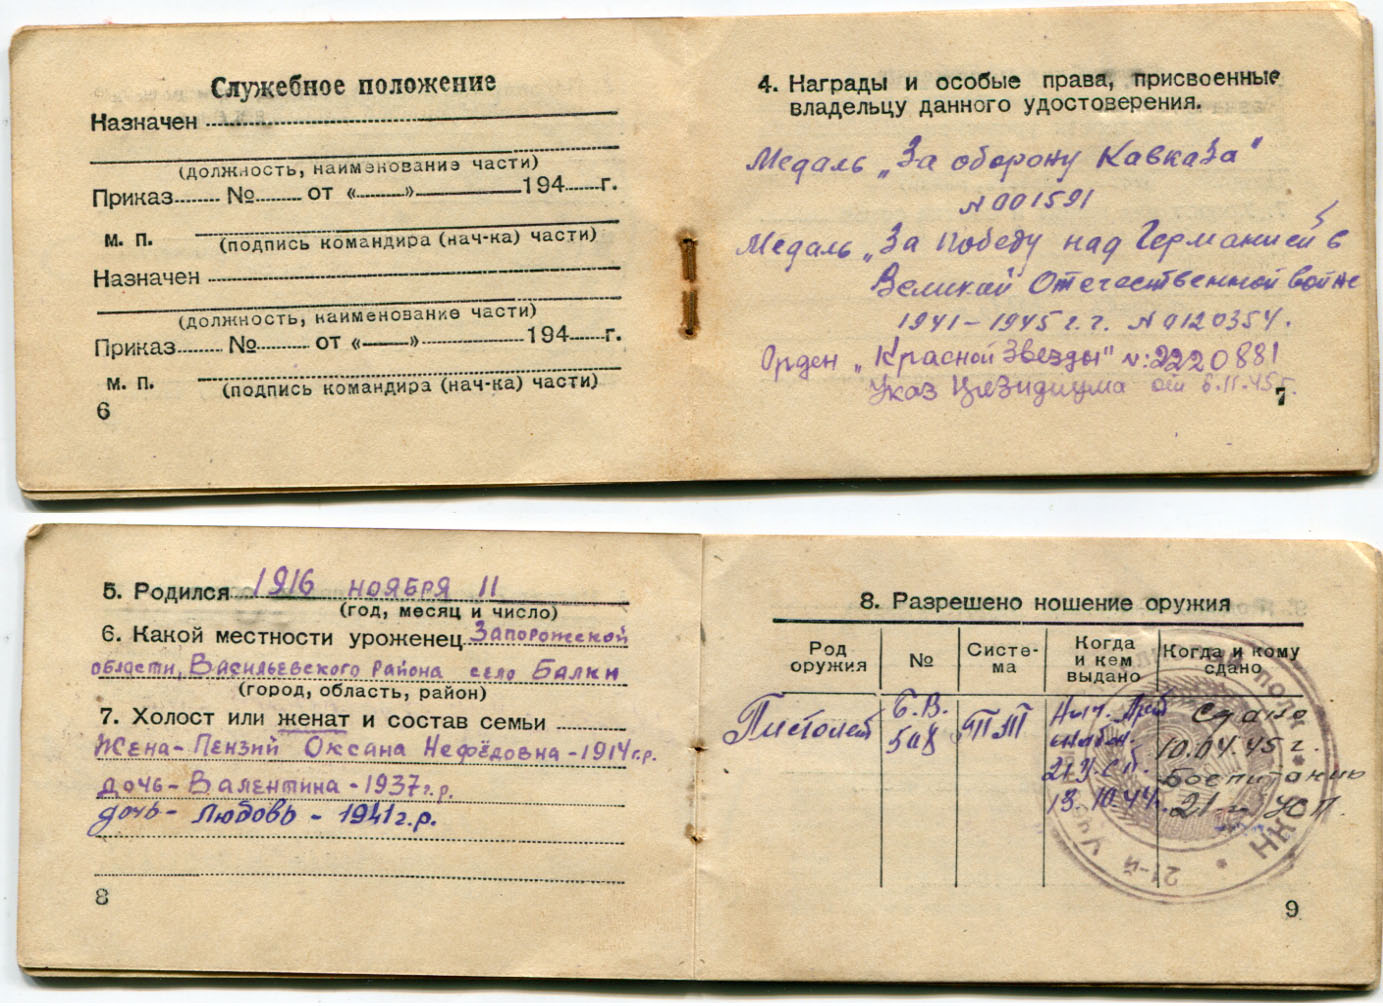 Служебное положение
Назначен
(должность, наименование части)
Приказ № от « » 194 г.
м. п.
(подпись командира (нач-ка) части)
Назначен
(должность, наименование части)
Приказ № от « » 194 г.
м. п.
(подпись командира (нач-ка) части)
6
4. Награды и особые права, присвоенные
владельцу данного удостоверения.
Медаль „За оборону Кавказа"
N 001591
Медаль „За Победу над Германией в
Великой Отечественной войне
1941–1945 г.г. N 0120354.
Орден „Красной Звезды" N: 2220881
Указ от 6.11.45 г.
7
5. Родился 1916 ноября 11
(год, месяц и число)
6. Какой местности уроженец Запорожской
области, Васильевского района село Балки
(город, область, район)
7. Холост или женат и состав семьи
Жена - Пензий Оксана Нефёдовна - 1914 г.р.
дочь - Валентина - 1937 г.р.
дочь - Любовь - 1941 г.р.
8
8. Разрешено ношение оружия
Род оружия
№
Систе-
ма
Когда
и кем
выдано
Когда и кому
сдано
Пистолет
508
ТТ
Нач.
13.10.44 г.
Сдано
10.04.45 г.
Боепитанию
21 УСП.
21-й
полк
9